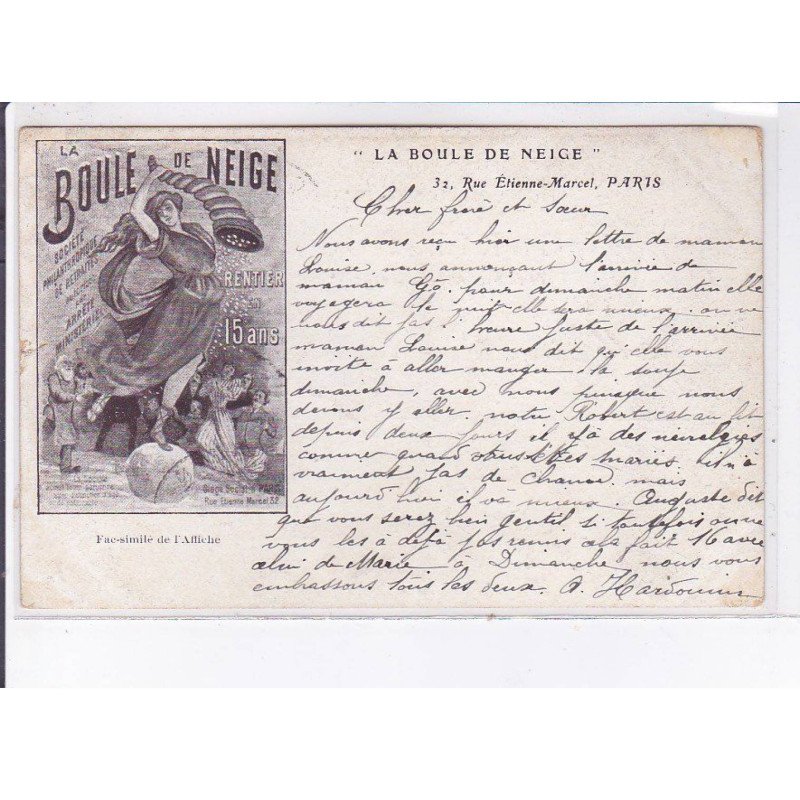 LA
BOULE DE NEIGE
SOCIÉTÉ
PHILANTHROPIQUE
DE RETRAITES
ARRÊTÉ
MINISTÉRIEL
RENTIER
EN
15 ans
Siège Social à PARIS
Rue Etienne Marcel 32
Fac-similé de l'Affiche
" LA BOULE DE NEIGE "
32, Rue Étienne-Marcel, PARIS
Cher frere et soeur
Nous avons reçu hier une lettre de maman
Louise nous annonçant l'arrivée de
maman Gô. pour dimanche matin elle
voyagera le nuit elle sera mieux. on ne
nous dit pas l'heure juste de l'arrivée
maman Louise nous dit qu'elle vous
invite à aller manger la soupe
dimanche, avec nous puisque nous
devons y aller. notre Robert est au lit
depuis deux jours il y a des nevralgies
comme quand vous êtes mariés il n'a
vraiment pas de chance mais
aujourd'hui il va mieux. Auguste dit
que vous serez bien gentil si toutefois on ne
vous les a déjà pas remis fait 16 avec
celui de Marie à Dimanche nous vous
embrassons tous les deux. A. Hardouin